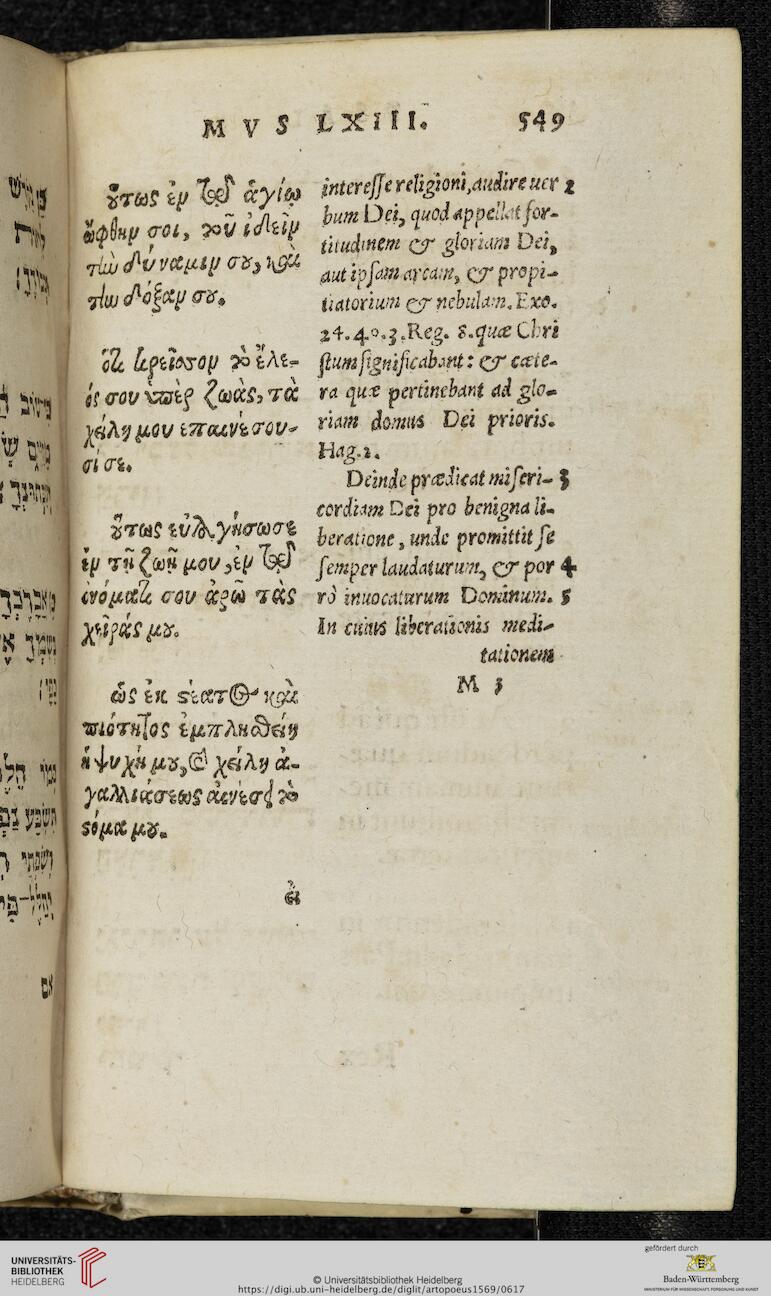 MVS LXIII. 549
οὕτως ἐν τῷ ἁγίῳ
ὤφθην σοι, τοῦ ἰδεῖν
τὴν δύναμιν σου, καὶ
τὴν δόξαν σου.
ὅτι κρεῖσσον τὸ ἔλε-
ός σου ὑπὲρ ζωὰς, τὰ
χείλη μου επαινέσου-
σί σε.
οὕτως εὐλογήσω σε
ἐν τῇ ζωῇ μου, ἐν τῷ
ὀνόματι σου ἀρῶ τὰς
χεῖράς μου.
ὡς ἐκ στέατος καὶ
πιότητος ἐμπλησθείη
ἡ ψυχή μου, καὶ χείλη ἀ-
γαλλιάσεως αἰνέσει τὸ
στόμα μου.
εἰ
interesse religioni, audire uer 2
bum Dei, quod appellat for-
titudinem & gloriam Dei,
aut ipsam arcam, & propi-
tiatorium & nebulam. Exo.
24. 40. 3. Reg. 8. quæ Chri
stum significabant: & cæte-
ra quæ pertinebant ad glo-
riam domus Dei prioris.
Hag. 2.
Deinde prædicat miseri- 3
cordiam Dei pro benigna li-
beratione, unde promittit se
semper laudaturum, & por 4
rò inuocaturum Dominum. 5
In cuius liberationis medi-
tationem
M 3
UNIVERSITÄTS-
BIBLIOTHEK
HEIDELBERG
© Universitätsbibliothek Heidelberg
https://digi.ub.uni-heidelberg.de/diglit/artopoeus1569/0617
gefördert durch
Baden-Württemberg
MINISTERIUM FÜR WISSENSCHAFT, FORSCHUNG UND KUNST